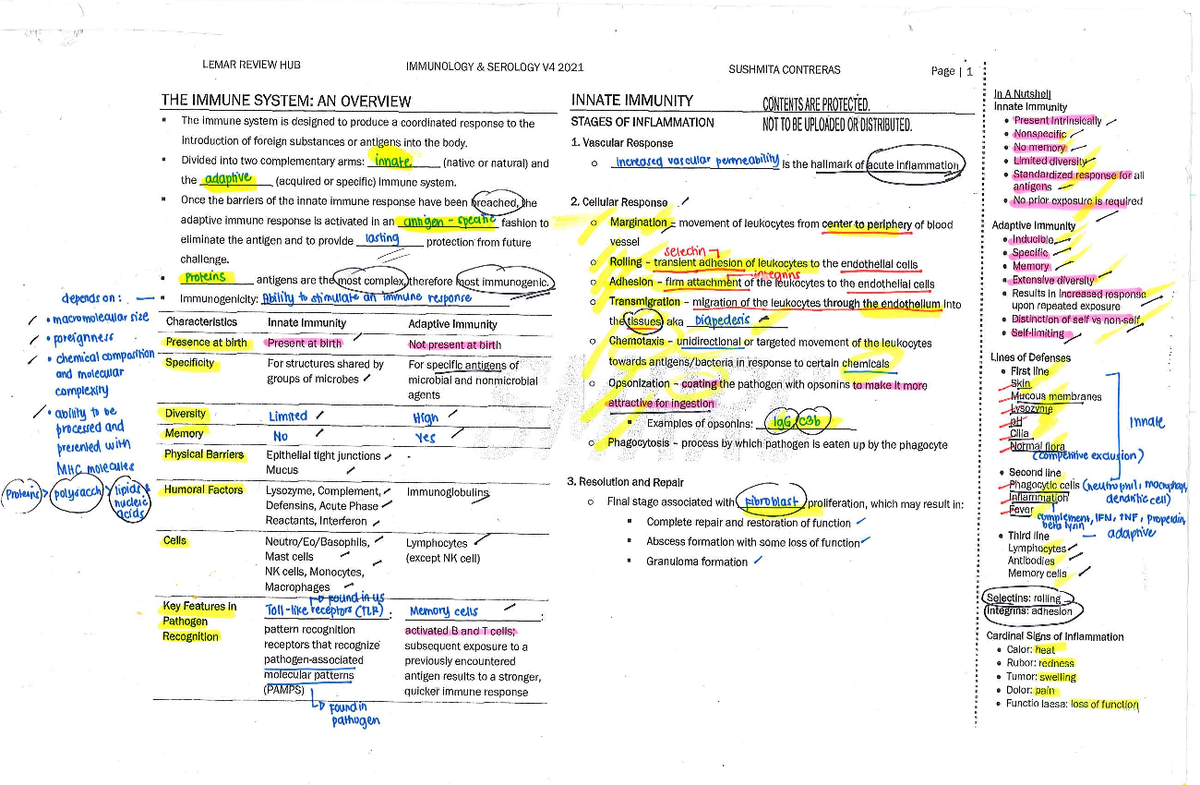 LEMAR REVIEW HUB
IMMUNOLOGY & SEROLOGY V4 2021
SUSHMITA CONTRERAS
Page | 1
THE IMMUNE SYSTEM: AN OVERVIEW
▪ The immune system is designed to produce a coordinated response to the
introduction of foreign substances or antigens into the body.
▪ Divided into two complementary arms: innate (native or natural) and
the adaptive (acquired or specific) immune system.
▪ Once the barriers of the innate immune response have been breached, the
adaptive immune response is activated in an antigen - specific fashion to
eliminate the antigen and to provide lasting protection from future
challenge.
▪ Proteins antigens are the most complex, therefore most immunogenic.
▪ Immunogenicity: Ability to stimulate an immune response
depends on:
• macromolecular size
• foreignness
• chemical composition
and molecular
complexity
• ability to be
processed and
presented with
MHC molecules
Proteins > polysacch > lipids &
nucleic
acids
Characteristics Innate Immunity Adaptive Immunity
Presence at birth Present at birth Not present at birth
Specificity For structures shared by For specific antigens of
groups of microbes microbial and nonmicrobial
agents
Diversity Limited High
Memory No Yes
Physical Barriers Epithelial tight junctions -
Mucus
Humoral Factors Lysozyme, Complement, Immunoglobulins
Defensins, Acute Phase
Reactants, Interferon
Cells Neutro/Eo/Basophils, Lymphocytes
Mast cells (except NK cell)
NK cells, Monocytes,
Macrophages
found in us
Key Features in Toll-like receptors (TLR) : Memory cells :
Pathogen pattern recognition activated B and T cells;
Recognition receptors that recognize subsequent exposure to a
pathogen-associated previously encountered
molecular patterns antigen results to a stronger,
(PAMPS) quicker immune response
found in
pathogen
INNATE IMMUNITY
CONTENTS ARE PROTECTED.
NOT TO BE UPLOADED OR DISTRIBUTED.
STAGES OF INFLAMMATION
1. Vascular Response
o increased vascular permeability is the hallmark of acute inflammation
2. Cellular Response
o Margination – movement of leukocytes from center to periphery of blood
vessel
selectin
o Rolling – transient adhesion of leukocytes to the endothelial cells
integrins
o Adhesion – firm attachment of the leukocytes to the endothelial cells
o Transmigration – migration of the leukocytes through the endothelium into
the tissues aka Diapedesis
o Chemotaxis – unidirectional or targeted movement of the leukocytes
towards antigens/bacteria in response to certain chemicals
o Opsonization – coating the pathogen with opsonins to make it more
attractive for ingestion
▪ Examples of opsonins: IgG, C3b
o Phagocytosis – process by which pathogen is eaten up by the phagocyte
3. Resolution and Repair
o Final stage associated with fibroblast proliferation, which may result in:
▪ Complete repair and restoration of function
▪ Abscess formation with some loss of function
▪ Granuloma formation
In A Nutshell
Innate Immunity
• Present intrinsically
• Nonspecific
• No memory
• Limited diversity
• Standardized response for all
antigens
• No prior exposure is required
Adaptive Immunity
• Inducible
• Specific
• Memory
• Extensive diversity
• Results in increased response
upon repeated exposure
• Distinction of self vs non-self
• Self-limiting
Lines of Defenses
• First line
Skin
Mucous membranes
Lysozyme
pH
Cilia
Normal flora
(competitive exclusion)
Innate
• Second line
Phagocytic cells (neutrophil, macrophage,
dendritic cell)
Inflammation
Fever
complement, IFN, TNF, properdin,
beta lysin
• Third line – adaptive
Lymphocytes
Antibodies
Memory cells
Selectins: rolling
Integrins: adhesion
Cardinal Signs of Inflammation
• Calor: heat
• Rubor: redness
• Tumor: swelling
• Dolor: pain
• Functio laesa: loss of function